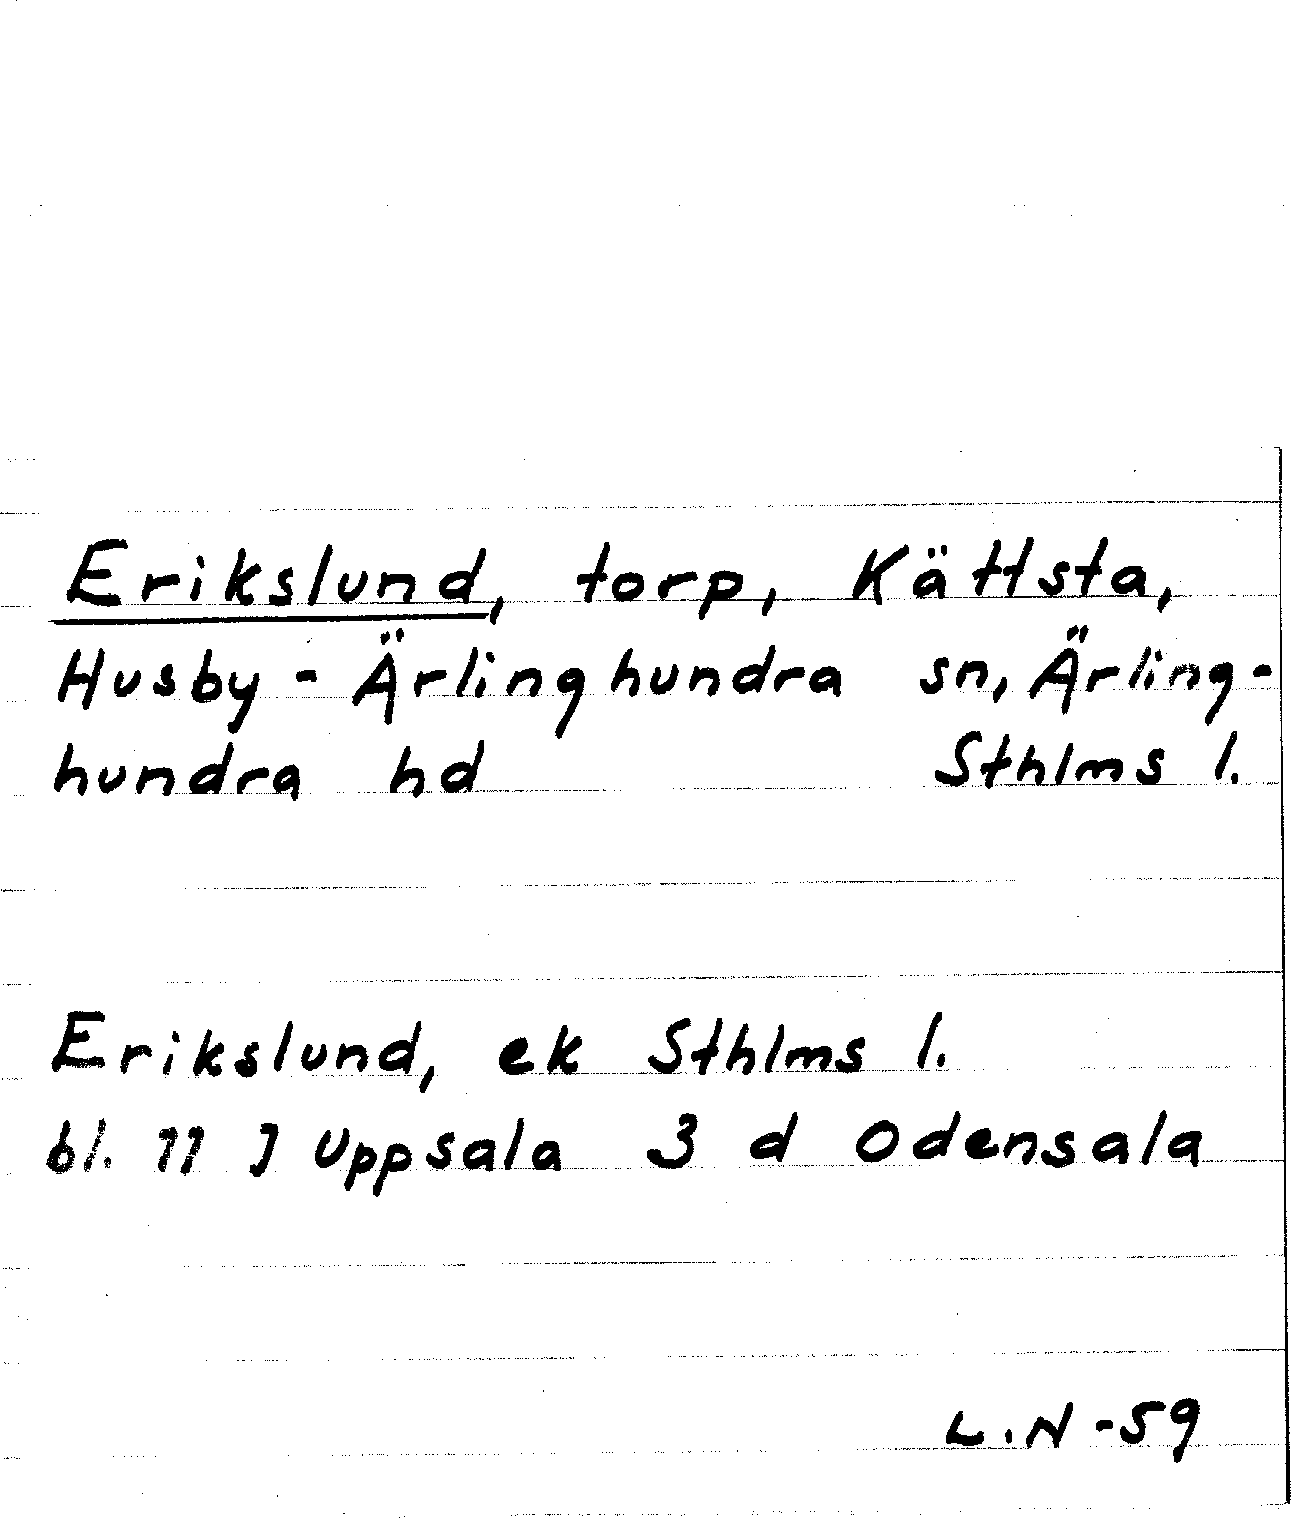 Erikslund, torp, Kättsta,
Husby-Ärlinghundra sn, Ärling-
hundra hd Sthlms l.
Erikslund, ek Sthlms l.
bl. 11 J Uppsala 3 d Odensala
L.N -59